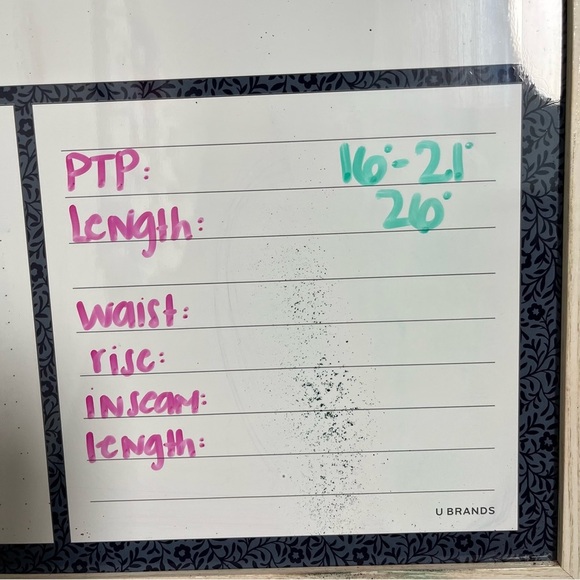 PTP: 16°-21°
Length: 26°
waist:
rise:
inseam:
length:
U BRANDS